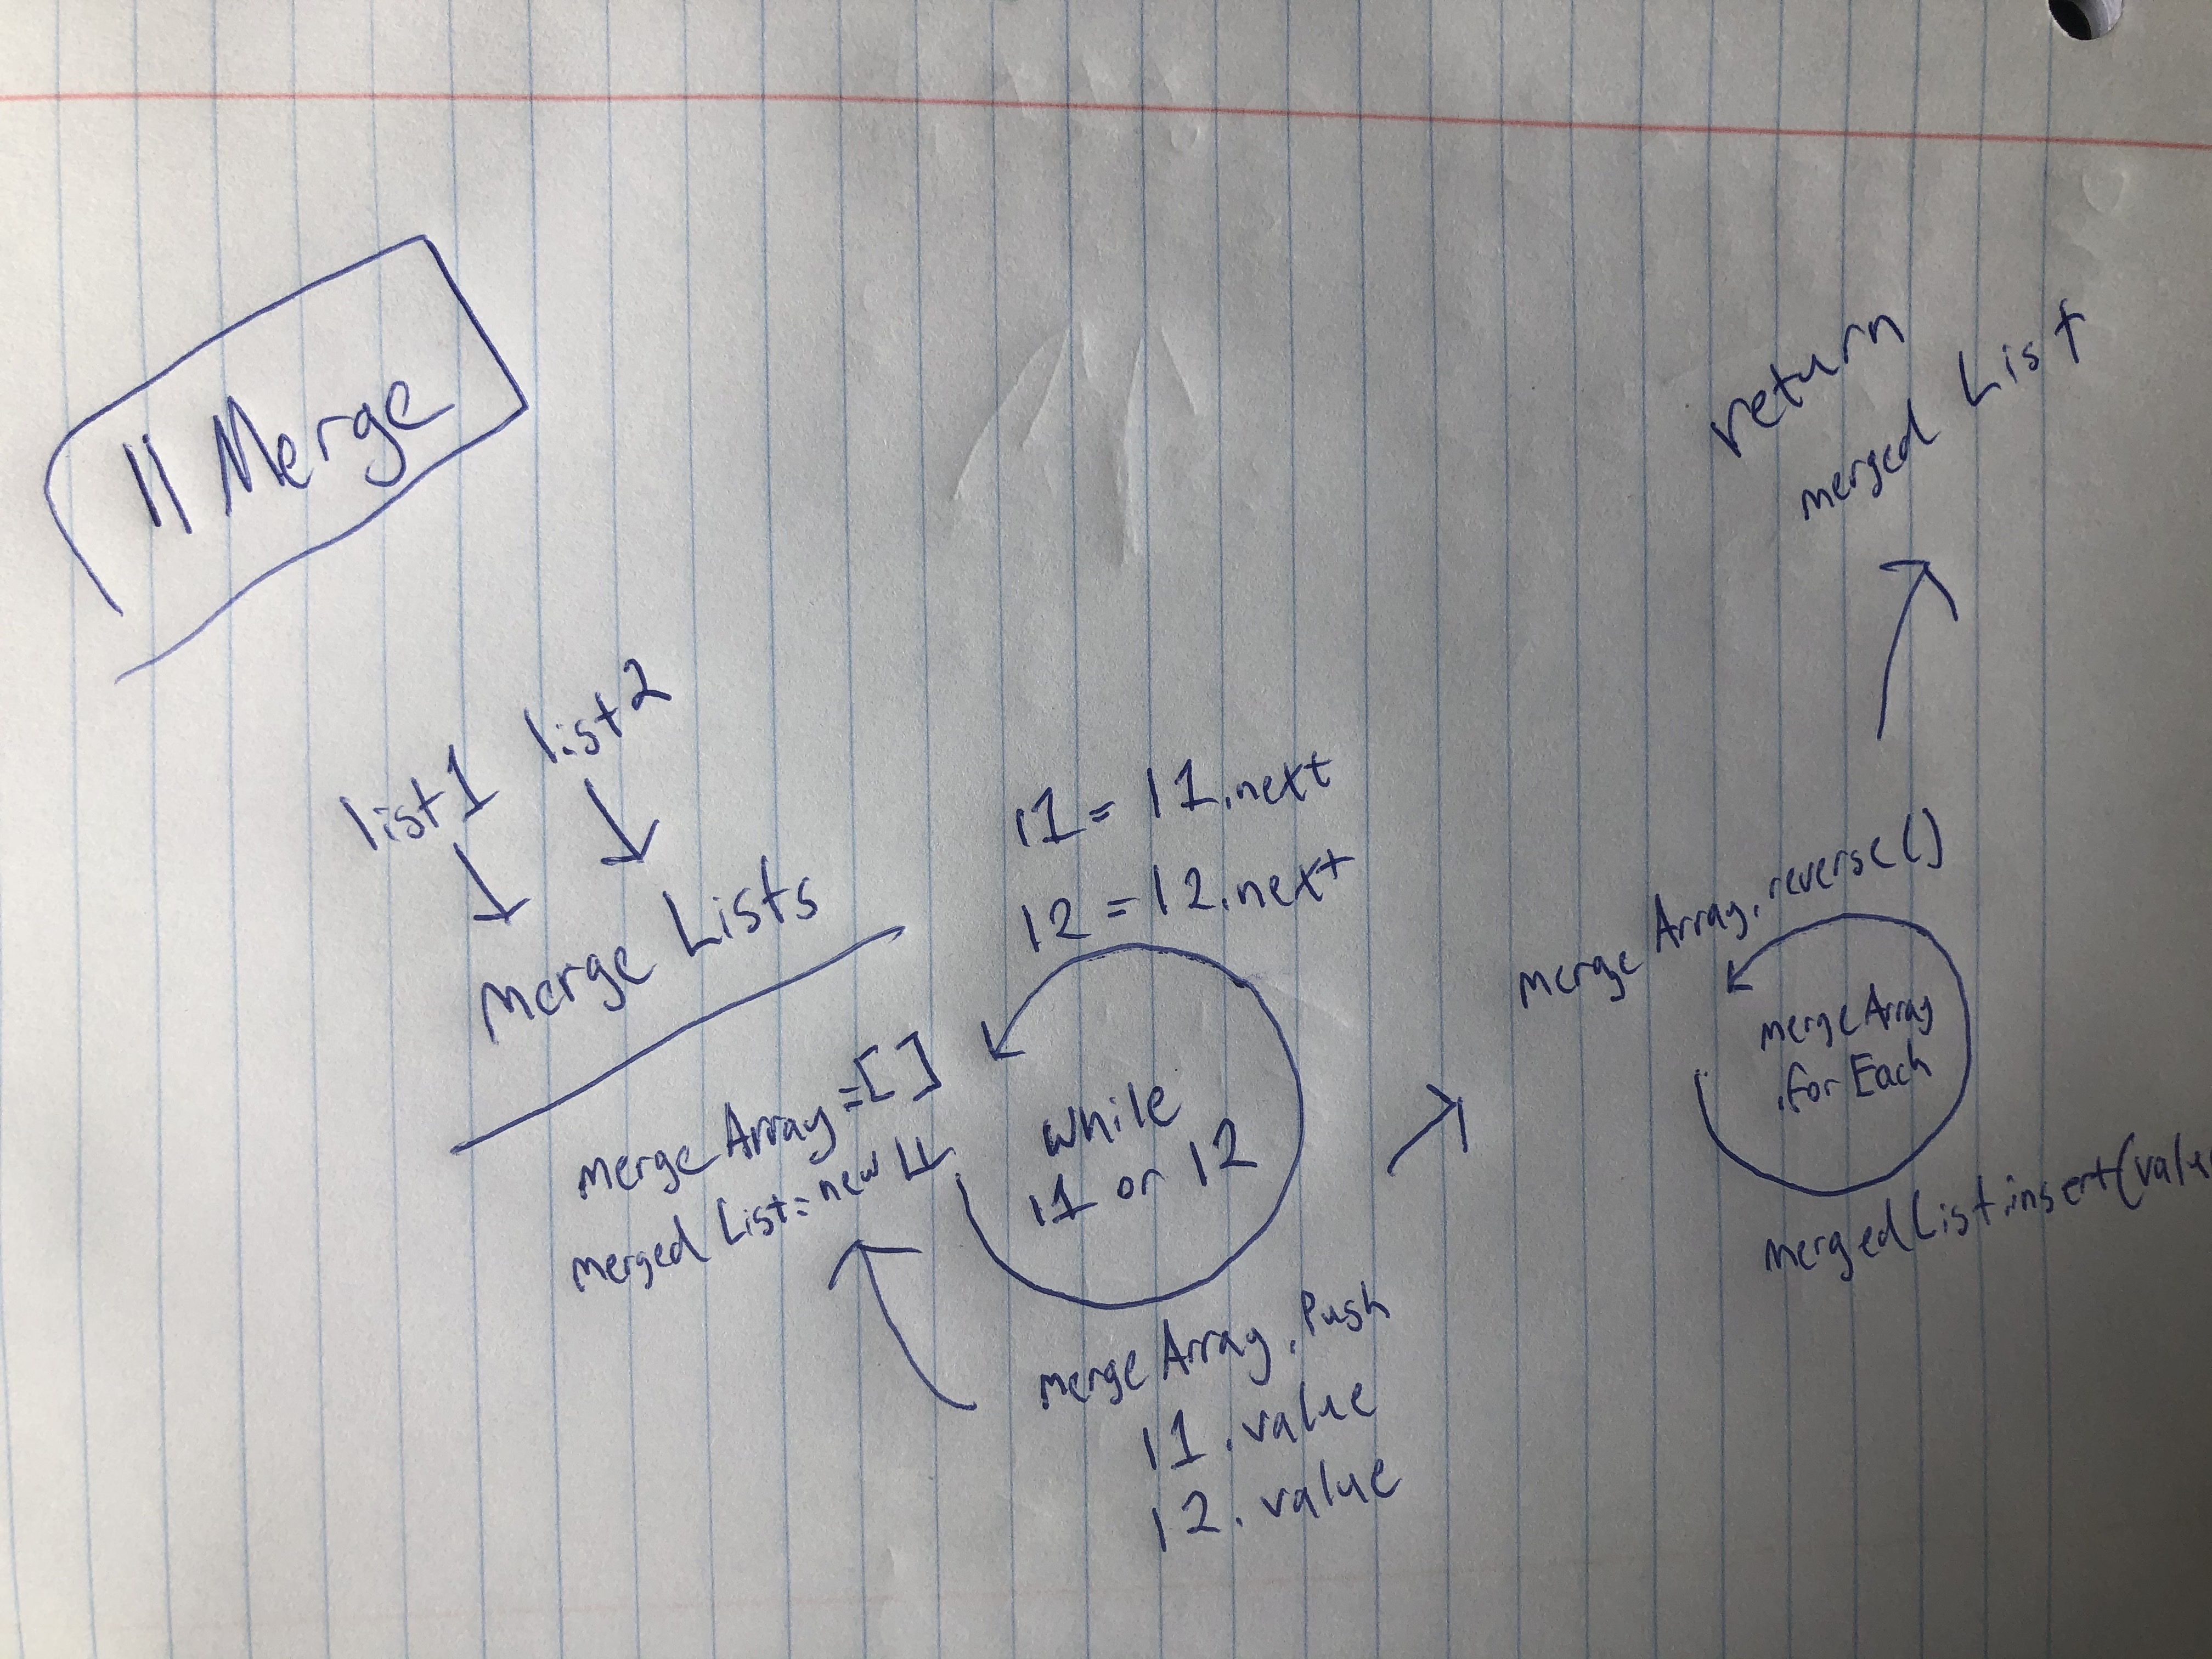 ll Merge
list1 list2
merge Lists
mergeArray=[]
merged List=new LL
l1 = l1.next
l2 = l2.next
while
l1 or l2
merge Array.Push
l1.value
l2.value
merge Array.reverse()
merge Array
.for Each
merged List.insert(value
return
merged List